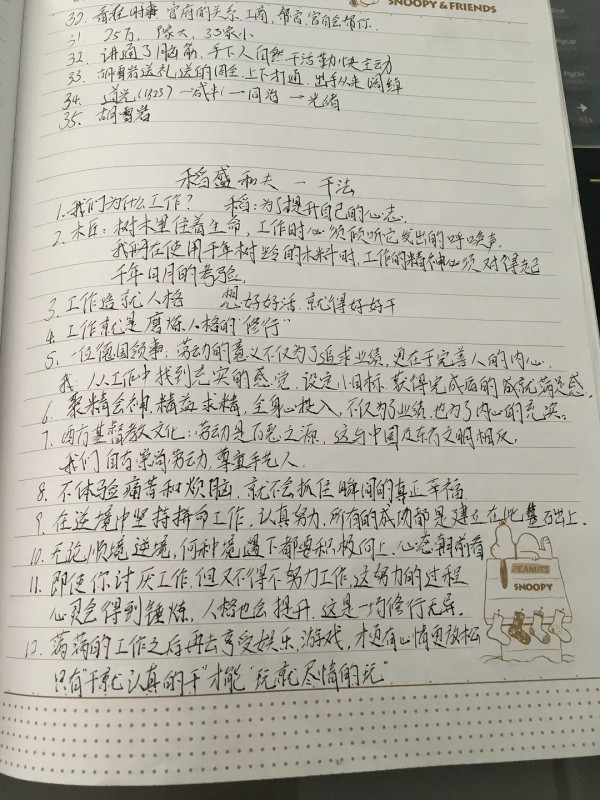 SNOOPY & FRIENDS
30. 看准时事 官府的关系, 工商, 帮官, 官自会帮你.
31. 25万, 除大, 33家小
32. 讲通了脑筋, 手下人自然干活勤快主动
33. 胡雪岩送礼, 送的周全, 上下打通, 出手从来阔绰
34. 道光(1823) 一咸丰 一同治 一光绪
35. 胡雪岩
稻盛和夫 一 干法
1. 我们为什么工作? 稻: 为了提升自己的心志.
2. 木匠: 树木里住着生命, 工作时必须倾听它发出的呼唤声.
我们在使用千年树龄的木料时, 工作的精神必须对得起
千年日月的考验.
3. 工作造就人格 想好好活, 就得好好干
4. 工作就是磨炼人格的"修行"
5. 一位德国领事: 劳动的意义不仅为了追求业绩, 更在于完善人的内心.
我: 从工作中找到充实的感觉, 设定小目标, 获得完成后的成就满足感.
6. 聚精会神, 精益求精, 全身心投入, 不仅为了业绩, 也为了内心的充实.
7. 西方基督教文化: 劳动是万恶之源, 这与中国及东方文明相反.
我们自古崇尚劳动, 尊重手艺人.
8. 不体验痛苦和烦脑, 就不会抓住瞬间的真正幸福
9. 在逆境中坚持拼命工作, 认真努力, 所有的成功都是建立在此基石上.
10. 无论顺境逆境, 何种境遇下都要积极向上, 心态朝前看
11. 即使你讨厌工作, 但又不得不努力工作, 这努力的过程
心灵会得到锤炼, 人格也会提升, 这是一均修行无异.
12. 满满的工作之后再去享受娱乐, 游戏, 才更有心情更放松
只有"干就认真的干"才能"玩就尽情的玩"
PEANUTS
SNOOPY